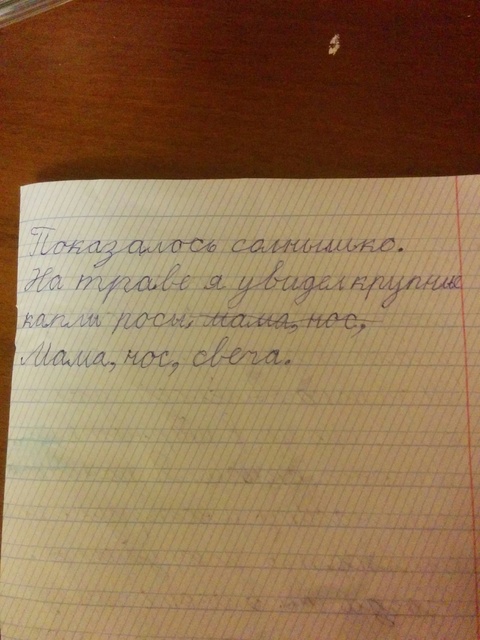 Показалось солнышко.
На траве я увидел крупные
капли росы. мама, нос,
Мама, нос, свеча.